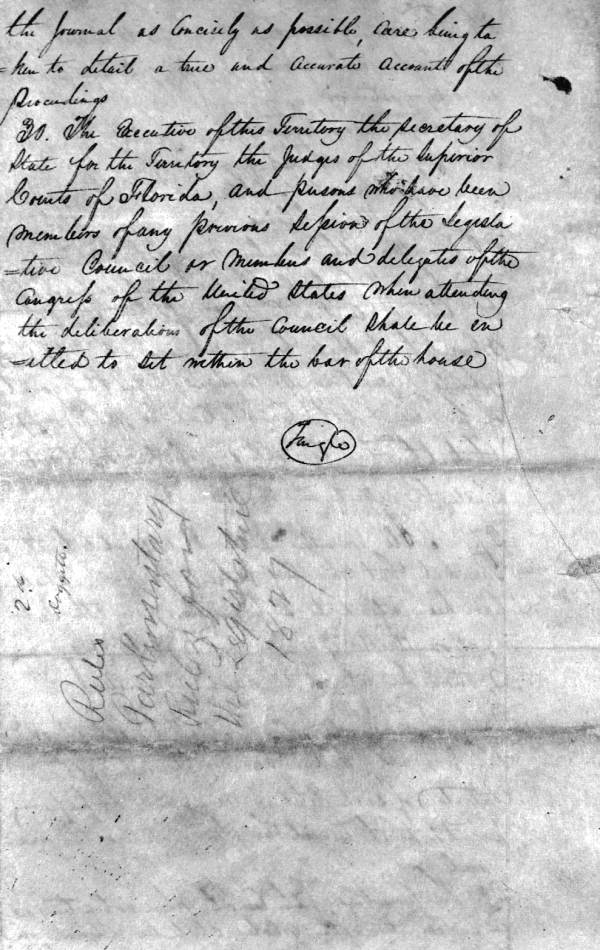 the Journal as Concisely as possible, care being ta
=ken to detail a true and accurate account of the
Proceedings
30. The Executive of this Territory the Secretary of
State for the Territory the Judges of the Superior
Courts of Florida, and persons who have been
members of any previous Session of the Legisla
=tive Council or Members and delegates of the
Congress of the United States when attending
the deliberations of the Council shall be en
=titled to sit within the bar of the house
2d
Rules
Parliamentary
Rules for
the Legislative
1827